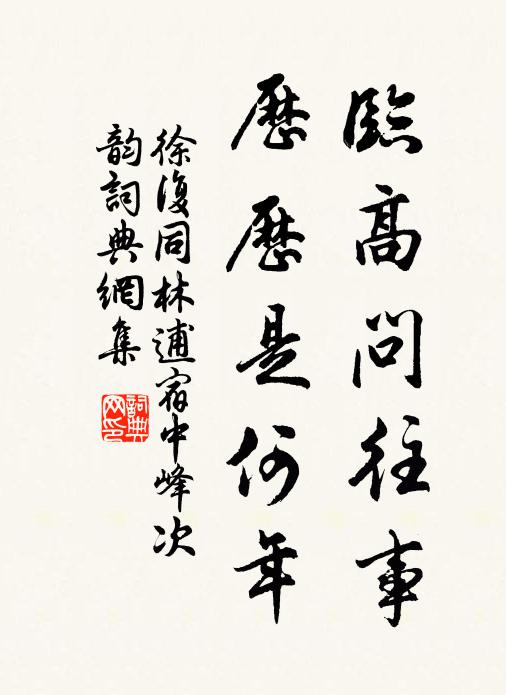 臨高問往事
歷歷是何年
徐復同林逋宿中峰次
韵詞典網集
詞典
网印